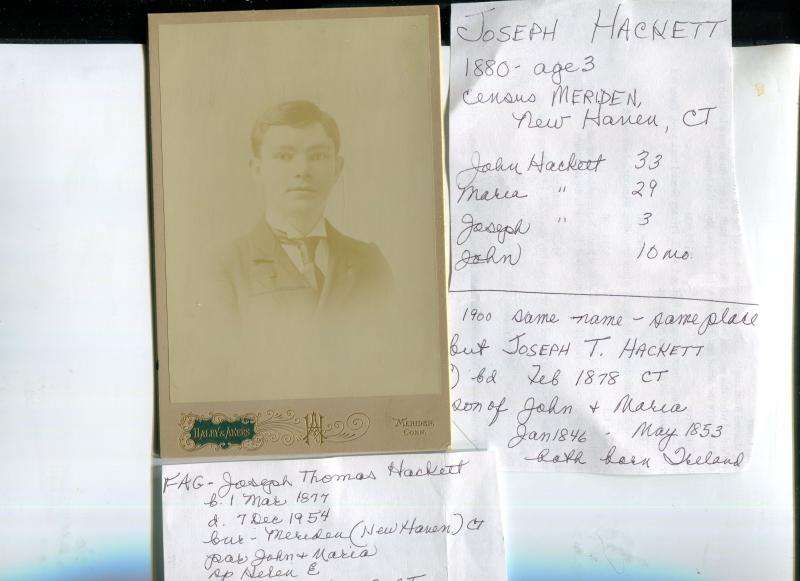 JOSEPH HACKETT
1880 - age 3
census MERIDEN,
New Haven, CT
John Hackett 33
Maria " 29
Joseph " 3
John 10 mo.
1900 same name - same place
but JOSEPH T. HACKETT
) bd Feb 1878 CT
son of John + Maria
Jan 1846 - May 1853
both born Ireland
HALBY & AKERS
MERIDEN,
CONN.
FAG - Joseph Thomas Hackett
b. 1 Mar 1877
d. 7 Dec 1954
bur - Meriden (New Haven) CT
par John + Maria
sp Helen E